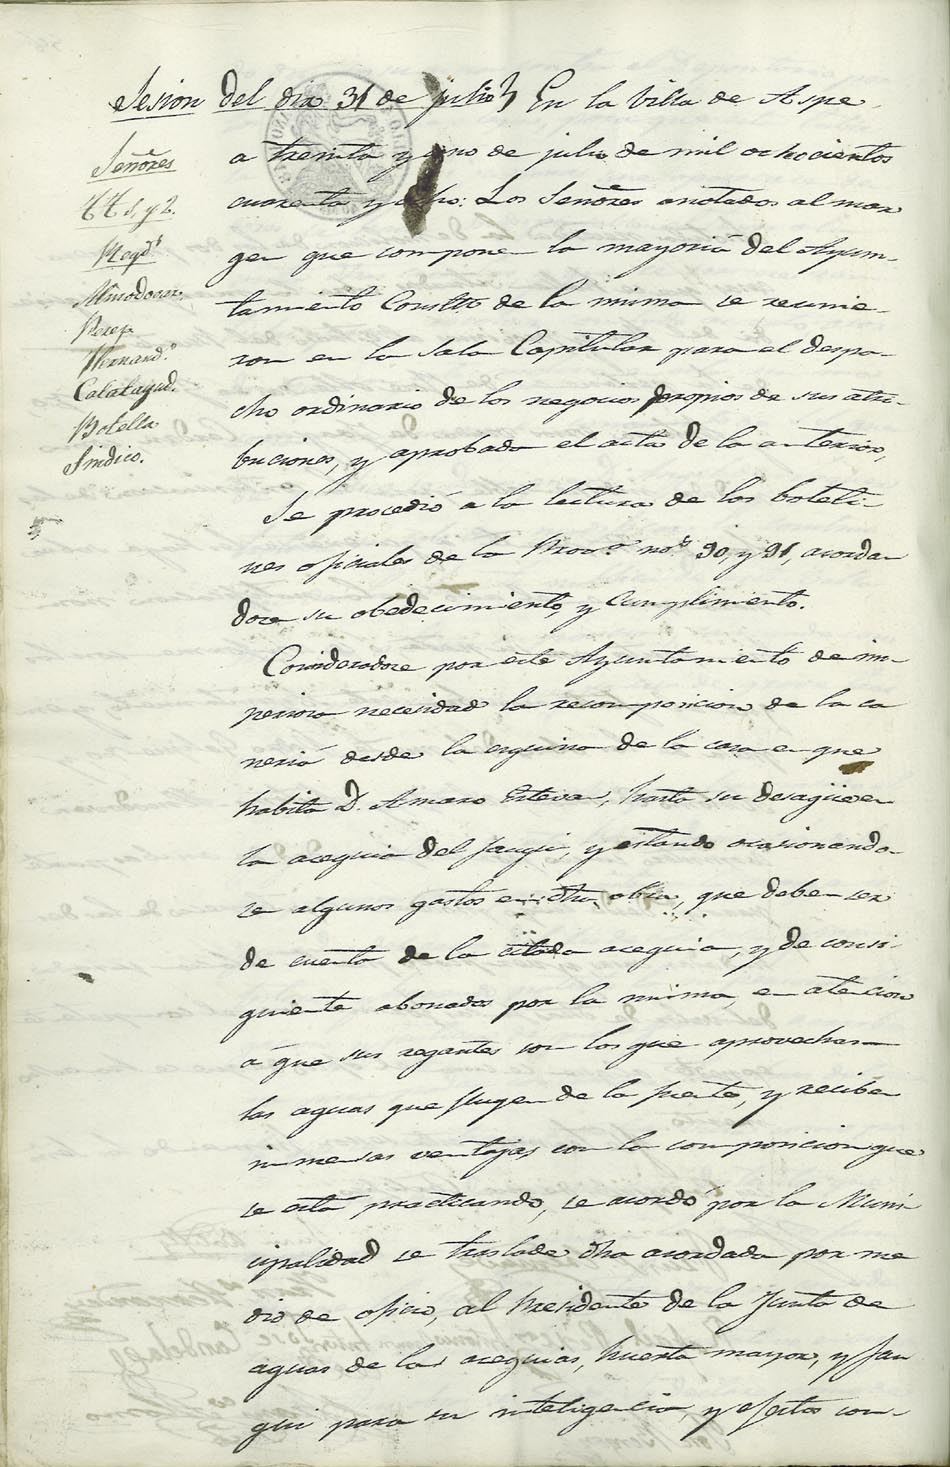 Sesion del dia 31 de julio En la Villa de Aspe
a treinta y uno de julio de mil ochocientos
cuarenta y ocho: Los Señores anotados al mar
gen que componen la mayoria del Ayun-
tamiento Constl. de la misma se reunie-
ron en la Sala Capitular para el despa-
cho ordinario de los negocios propios de sus atri-
buciones, y aprobada el acta de la anterior,
Señores
tt 1, y 2.
Regds
Almodovar.
Perez.
Hernando.
Calatayud.
Botella
Sindico.
Se procedió a la lectura de los boleti-
nes oficiales de la Prova. nos. 90, y 91, acordan
dose su obedecimiento, y cumplimiento.
Considerandose por este Ayuntamiento de im-
periosa necesidad la recomposicion de la ca
ñeria desde la esquina de la casa en que
habita D. Amaro Esteve, hasta su desagüe en
la acequia del fauqui, y estando ocasionando-
se algunos gastos en dha. obra, que deben ser
de cuenta de la citada acequia, y de consi-
guiente abonados por la misma, en atencion
á que sus regantes son los que aprovechan
las aguas que fluyen de la fuente, y reciben
inmensas ventajas con la composicion que
se esta practicando, se acordó por la Muni
cipalidad se traslade dha acordada por me
dio de oficio, al Presidente de la Junta de
aguas de las acequias, huerta mayor, y fau
qui para su inteligencia, y efectos con-